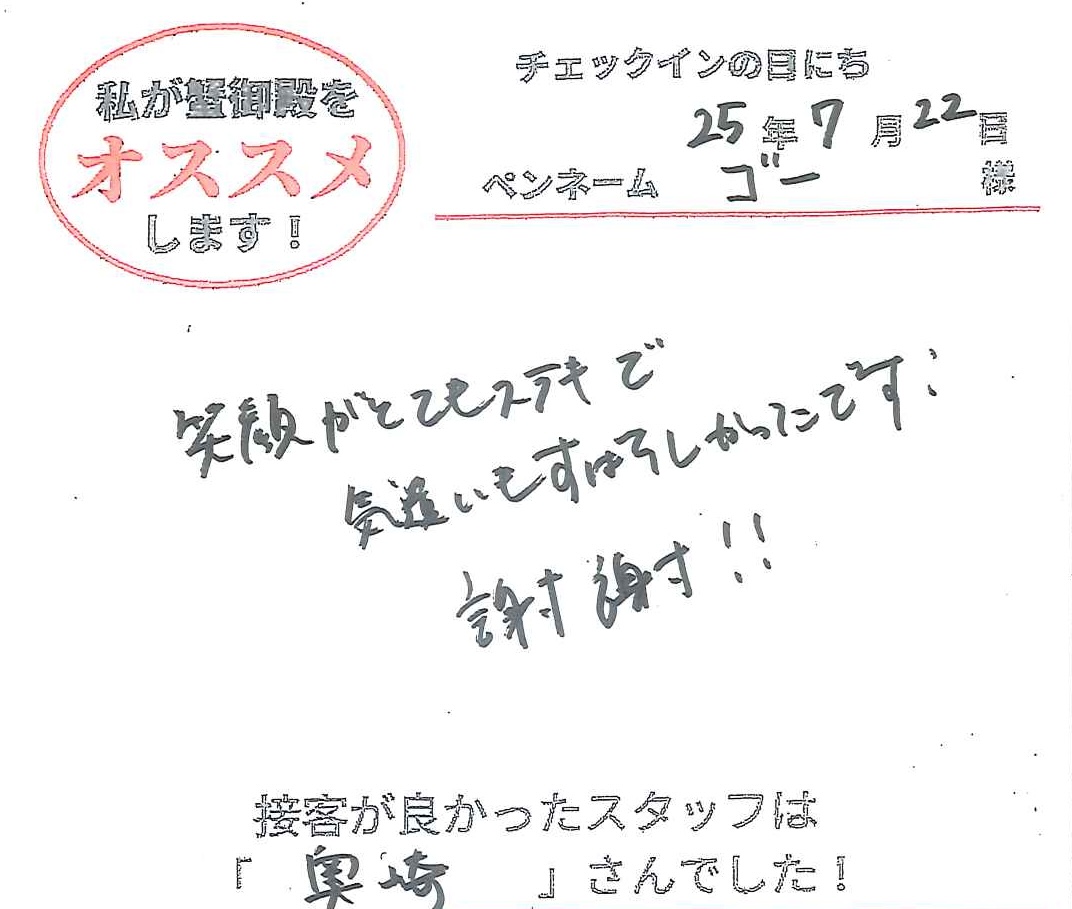 私が蟹御殿を
オススメ
します！
チェックインの日にち
25年7月22日
ペンネーム ゴー 様
笑顔がとてもステキで
気遣いもすばらしかったです！
謝謝!!
接客が良かったスタッフは
「奥崎」さんでした！